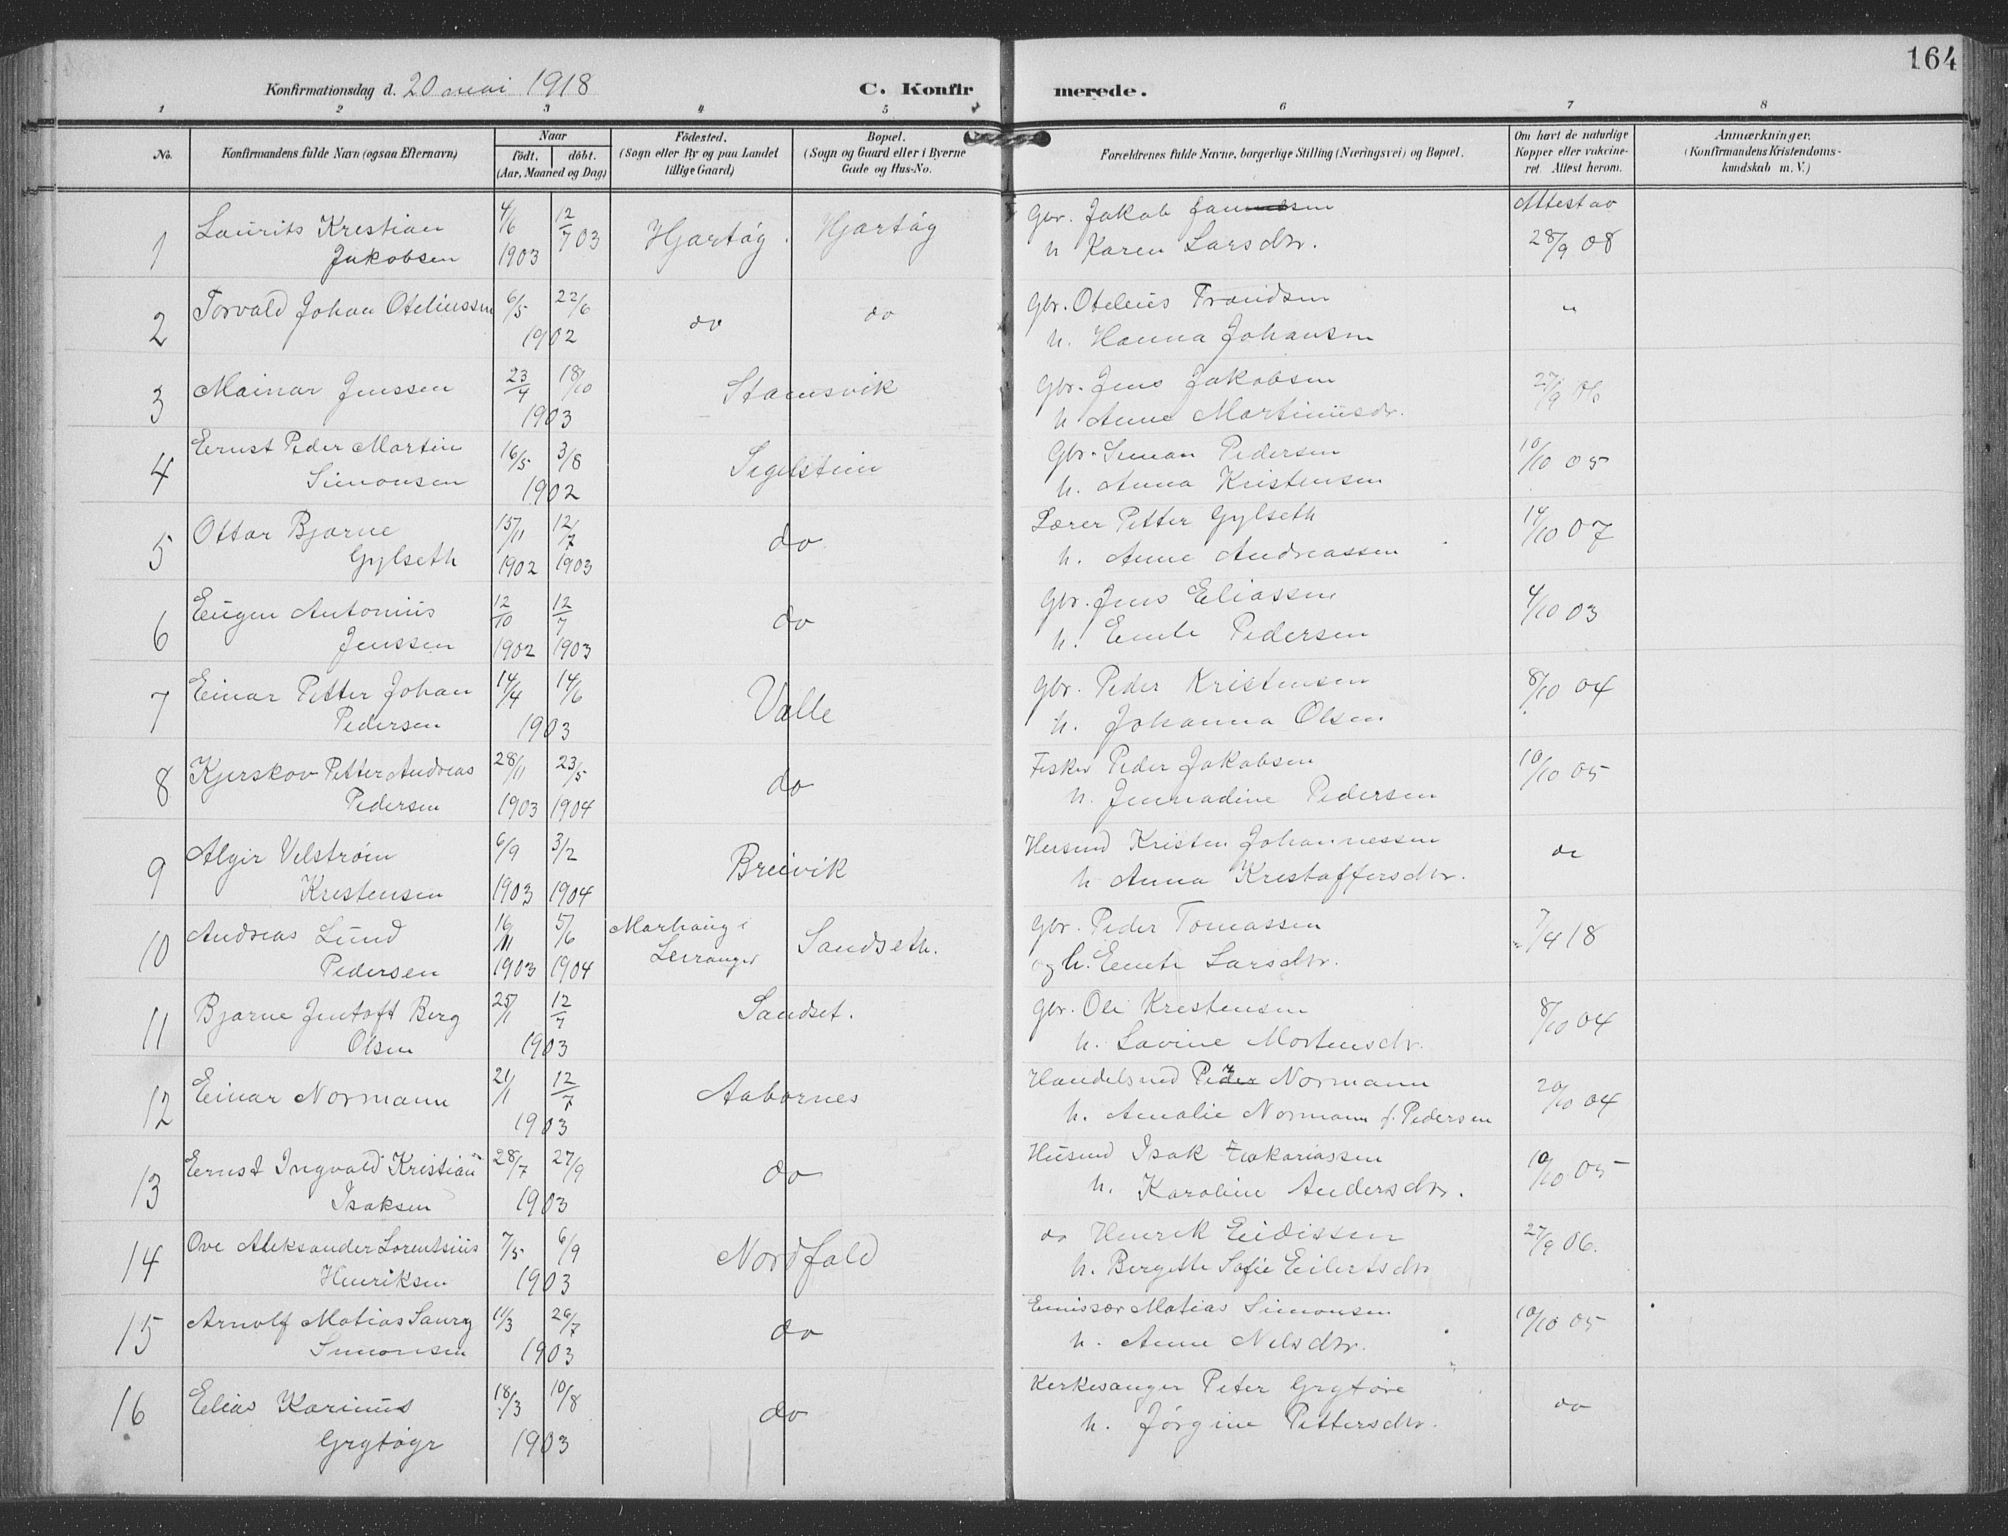 164
Konfirmationsdag d. 20 mai 1918
C. Konfirmerede.
1 2 3 4 5 6 7 8
No.
Konfirmandens fulde Navn (ogsaa Efternavn)
Naar
födt. döbt.
(Aar, Maaned og Dag)
Födested.
(Sogn eller By og paa Landet
tillige Gaard)
Bopæl.
(Sogn og Gaard eller i Byerne
Gade og Hus-No.
Forældrenes fulde Navne, borgerlige Stilling (Næringsvei) og Bopæl.
Om havt de naturlige
Kopper eller vakcine-
ret. Attest herom.
Anmærkninger.
(Konfirmandens Kristendoms-
kundskab m. V.)
1 Laurits Kristian Jakobsen 4/6 1903 12/7 03 Hjartøy. Hjartøy
Gbr. Jakob
h Karen Larsdtr.
Attest av 28/9 08
2 Torvald Johan Oteliussen 6/5 22/6 1902 do do
Gbr. Otelius Trondsen
h. Hanna Johansen
"
3 Mainar Jenssen 23/4 18/10 1903 Stamsvik
Gbr. Jens Jakobsen
h Anne Martinusdr.
27/9 06
4 Ernst Peder Martin Simonsen 16/5 3/8 1902 Segelstein
Gbr. Simon Pedersen
h. Anna Kristensen
10/10 05
5 Ottar Bjarne Gylseth 15/11 1902 12/7 1903 do
Lærer Petter Gylseth
h. Anne Andreassen
14/10 07
6 Eugen Antonius Jenssen 12/10 1902 12/7 1903 do
Gbr. Jens Eliassen
h. Emile Pedersen
4/10 03
7 Einar Petter Johan Pedersen 14/4 14/6 1903 Valle
Gbr. Peder Kristensen
h. Johanna Olsen
8/10 04
8 Kjerskov Petter Andreas Pedersen 28/11 1903 23/5 1904 do
Fisker Peder Jakobsen
h. Jennadine Pedersen
10/10 05
9 Algir Velstrøm Kristensen 6/9 1903 3/2 1904 Breivik
Husmd Kristen Johannessen
h Anna Kristoffersdtr.
do
10 Andreas Lund Pedersen 16/11 1903 5/6 1904 Marhaug i Leiranger Sandseth.
Gbr. Peder Tomassen
og h. Emile Larsdtr.
7/4 18
11 Bjarne Jentoft Berg Olsen 25/1 12/7 1903 Sandset.
Gbr. Ole Kristensen
h. Lavine Mortensdtr.
8/10 04
12 Einar Normann 21/1 12/7 1903 Aabornes
Handelsmd Peder Normann
h. Amalie Normann f. Pedersen
20/10 04
13 Ernst Ingvald Kristian Isaksen 28/7 27/9 1903 do
Husmd Isak Zakariassen
h. Karoline Andersdtr.
10/10 05
14 Ove Aleksander Lorentsius Henriksen 7/5 6/9 1903 Nordfold
do Henrik Eidissen
h. Bergitte Sofie Eilertsdtr
27/9 06.
15 Arnolf Matias Saury Simonsen 11/3 26/7 1903 do
Emissær Matias Simonsen
h. Anne Nilsdtr.
10/10 05
16 Elias Karinus Grytøyr 18/3 10/8 1903 do
Kirkesanger Peter Grytøre
h. Jørgine Pettersdtr.
do